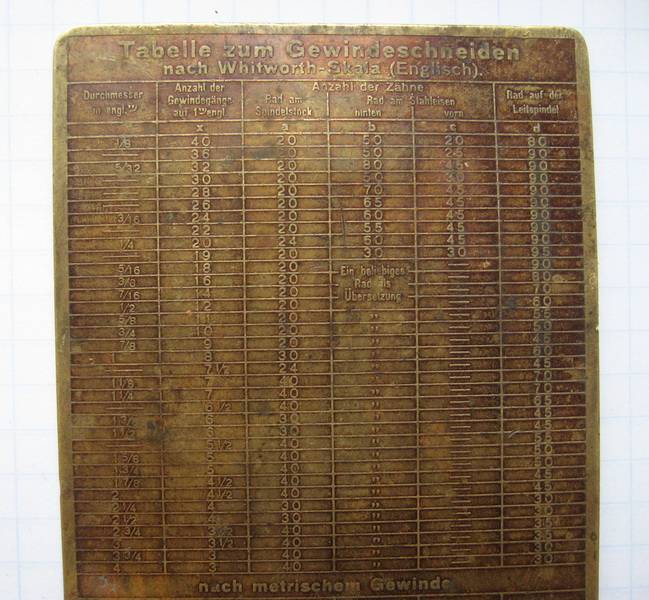 Tabelle zum Gewindeschneiden
nach Whitworth-Skala (Englisch).
Durchmesser
in engl."
Anzahl der
Gewindegänge
auf 1" engl.
Anzahl der Zähne
Rad am
Spindelstock
Rad am Stahleisen
hinten
vorn
Rad auf der
Leitspindel
x a b c d
1/8 40 20 50 20 80
36 20
5/32 32 20 80
30 20 90
28 20 70 45 90
26 20 65 45 90
3/16 24 20 60 45 90
22 20 55 45 90
1/4 20 24 60 45 90
19 20 30 30 95
5/16 18 20 Ein beliebiges 90
3/8 16 20 Rad als 80
7/16 14 20 Übersetzung 70
1/2 12 20 60
5/8 11 20 " 55
3/4 10 20 " 50
7/8 9 20 " 45
8 30 " 60
7 1/2 24 " 45
1 1/8 7 40 " 70
1 1/4 7 40 " 70
6 1/2 40 " 65
6 "
1 1/2 6 30 " 45
5 1/2 40 " 55
1 5/8 5 40 " 50
1 3/4 5 40 " 50
1 7/8 4 1/2 40 " 45
2 4 1/2 40 " 45
2 1/4 4 40 "
2 1/2 4 30 " 30
2 3/4 3 1/2 40 " 35
3 3 1/2 40 " 35
3 3/4 3 40 " 30
4 3 40 " 30
nach metrischem Gewinde